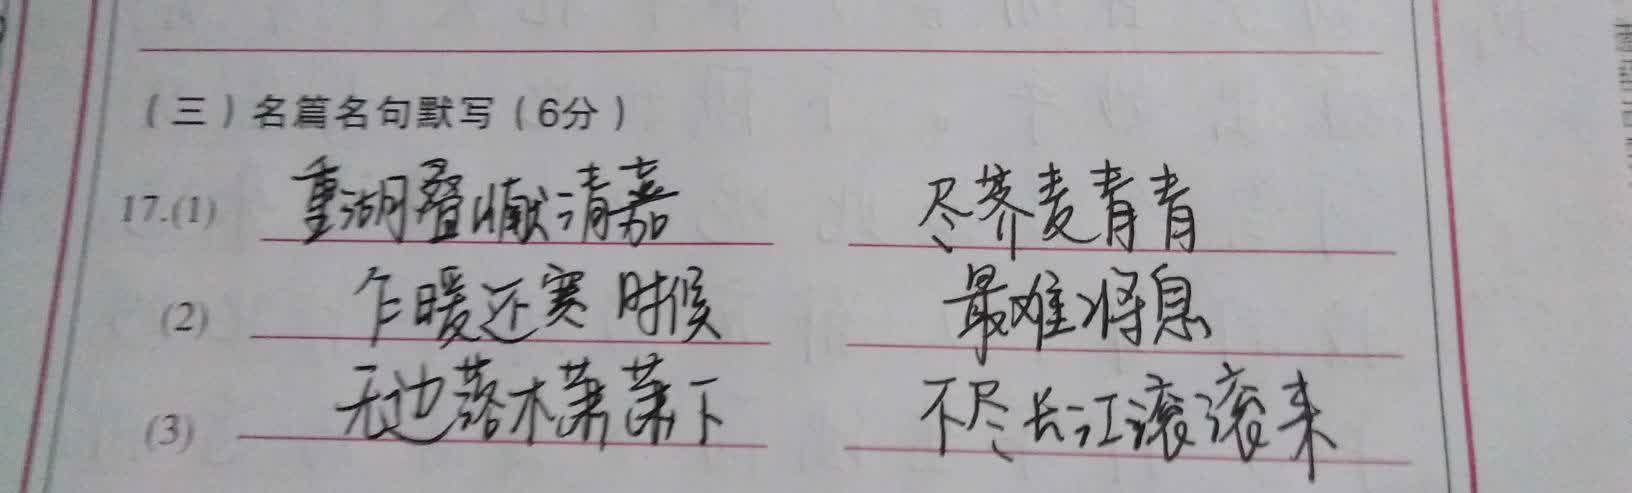 （三）名篇名句默写（6分）
17.(1) 重湖叠巘清嘉 尽荠麦青青
(2) 乍暖还寒时候 最难将息
(3) 无边落木萧萧下 不尽长江滚滚来